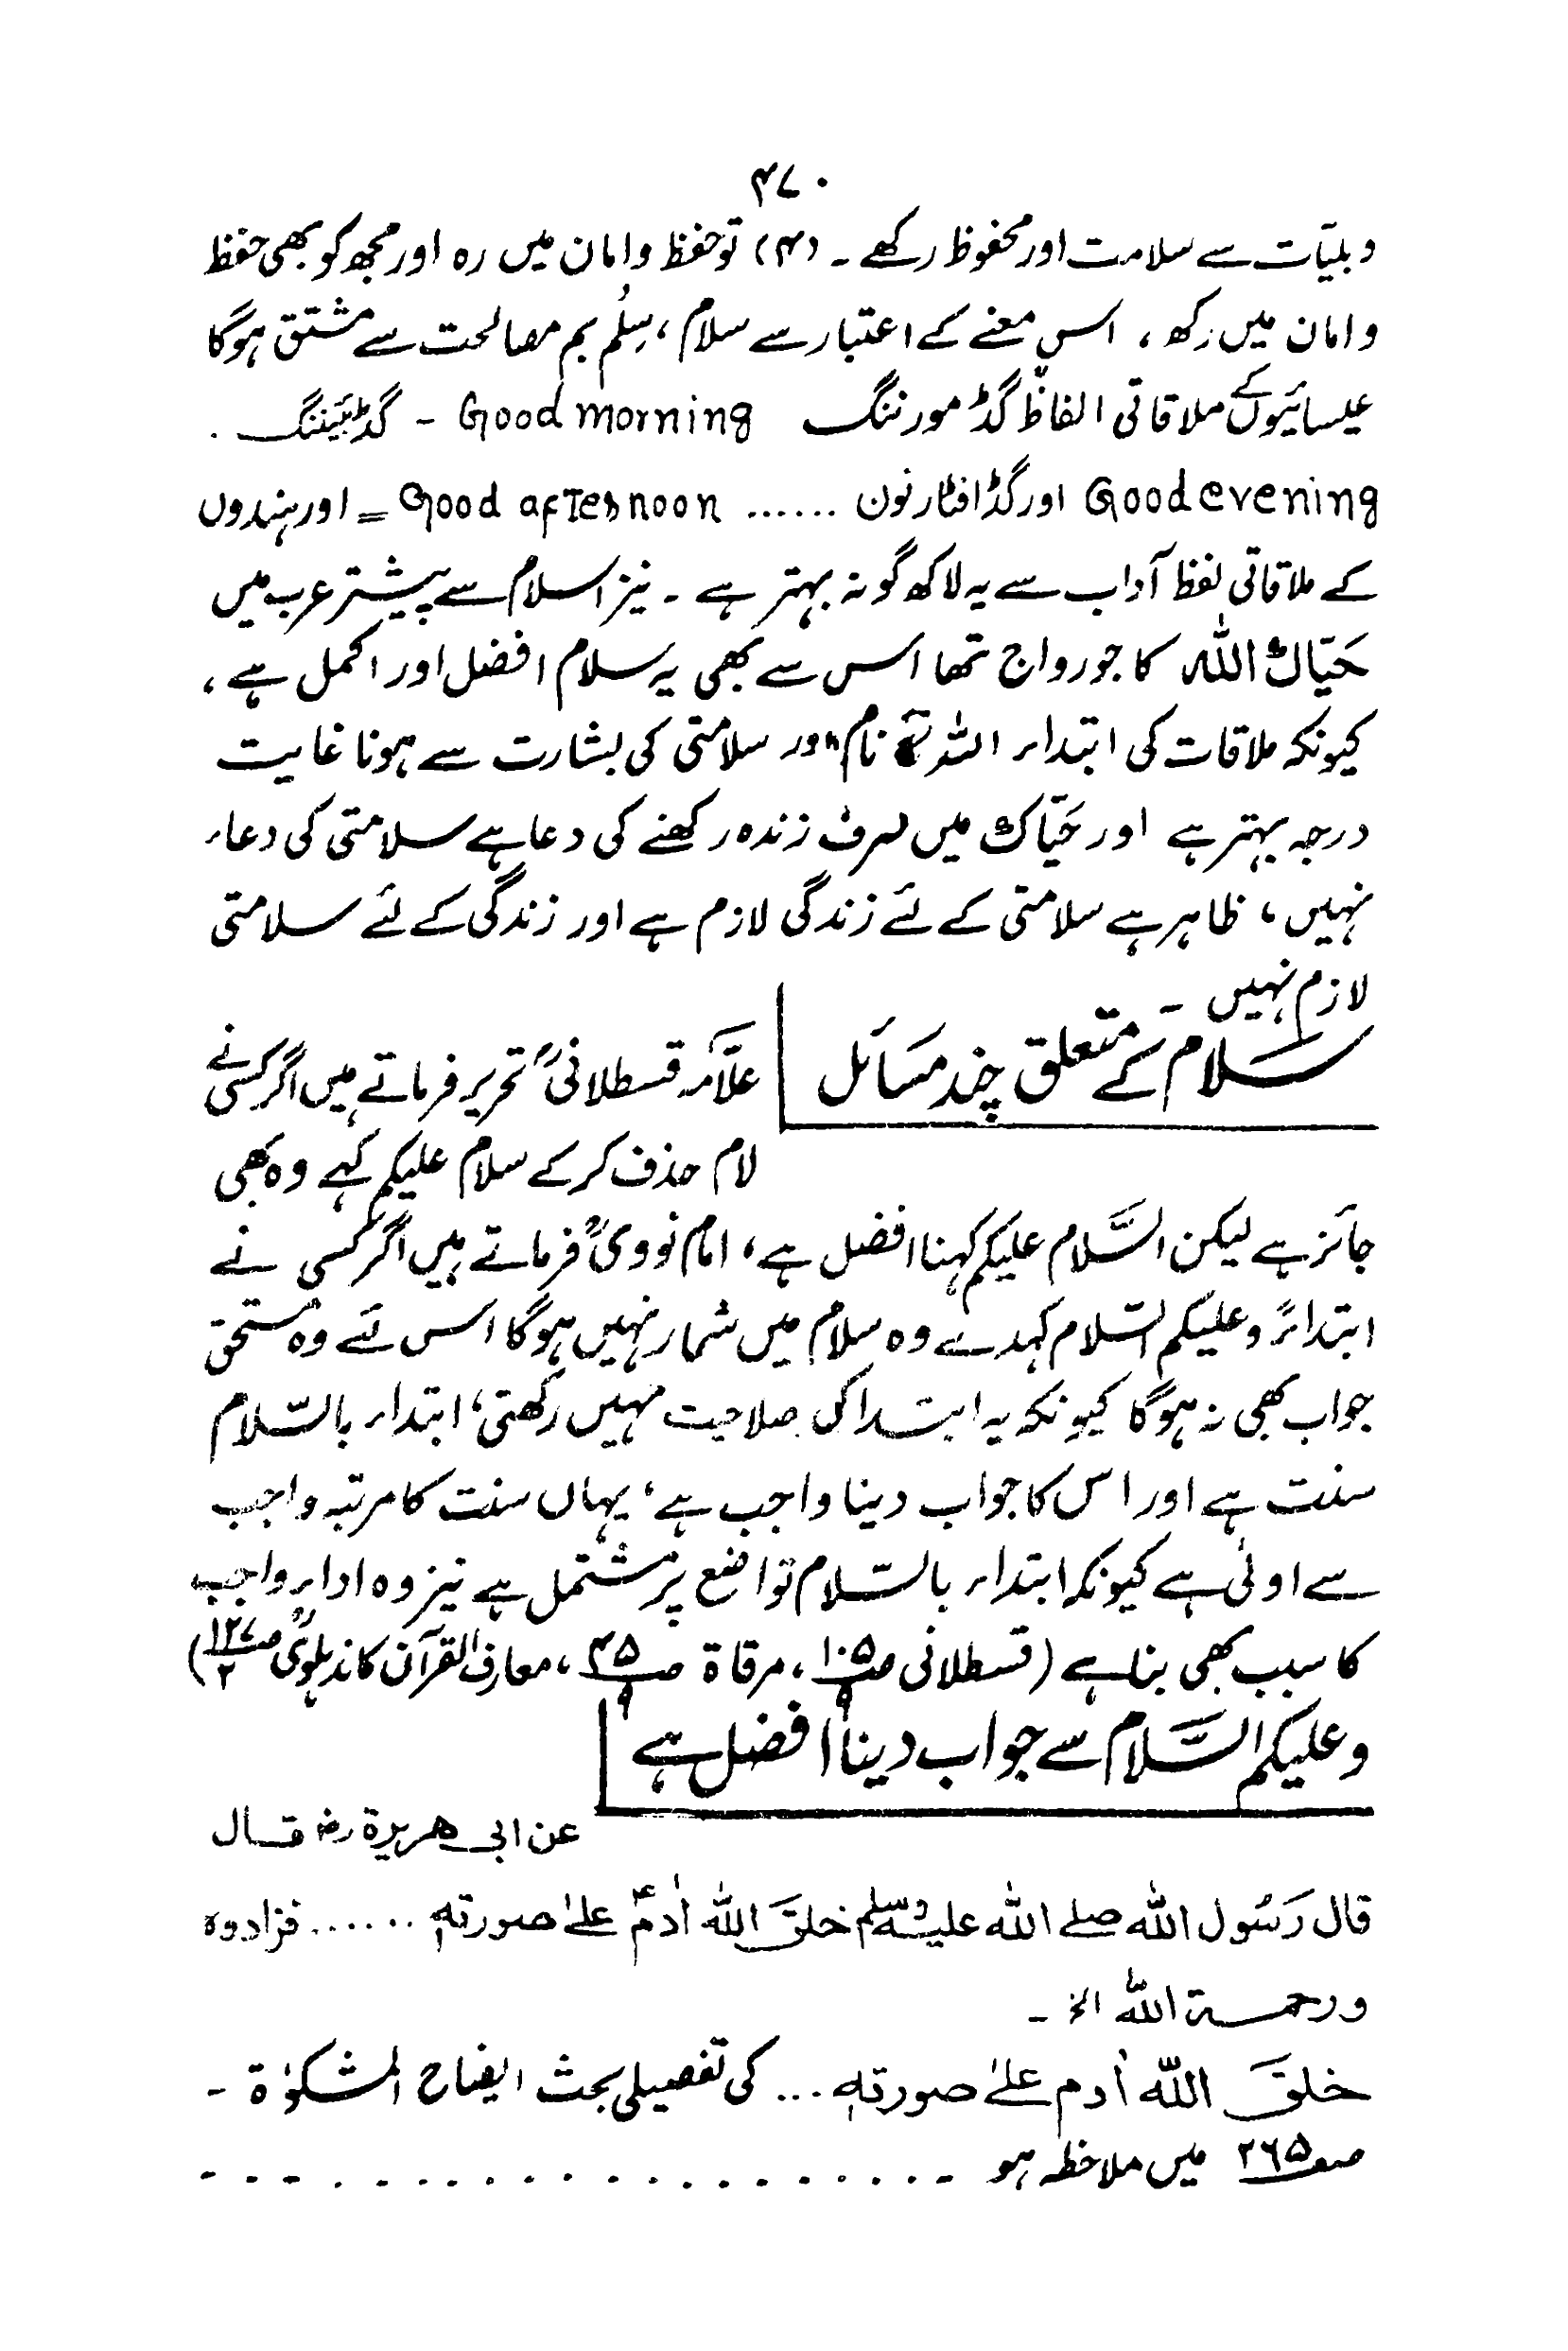 ۴۷۰
وبلیّات سے سلامت اور محفوظ رکھے ۔ (۴) تو حفظ و امان میں رہ اور مجھ کو بھی حفظ
و امان میں رکھ ، اس معنے کے اعتبار سے سلام ، سِلْم بم مصالحت سے مشتق ہوگا
عیسائیوں کے ملاقاتی الفاظ گڈ مورننگ Good morning - گڈ ایننگ .
Good evening اور گڈ افٹار نون ...... Good afternoon = اور ہندوں
کے ملاقاتی لفظ آداب سے یہ لاکھ گونہ بہتر ہے ۔ نیز اسلام سے پیشتر عرب میں
حَیَّاکَ اللہ کا جو رواج تھا اس سے بھی یہ سلام افضل اور اکمل ہے ،
کیونکہ ملاقات کی ابتداء اللہ کے نام اور سلامتی کی بشارت سے ہونا غایت
درجہ بہتر ہے اور حَیَّاکَ میں صرف زندہ رکھنے کی دعا ہے سلامتی کی دعاء
نہیں ، ظاہر ہے سلامتی کے لئے زندگی لازم ہے اور زندگی کے لئے سلامتی
لازم نہیں ۔
سَلام کے متعلق چند مسَائل
علّامہ قسطلانیؒ تحریر فرماتے ہیں اگر کسی نے
لام حذف کر کے سلام علیکم کہے وہ بھی
جائز ہے لیکن السَّلام علیکم کہنا افضل ہے ، امام نوویؒ فرماتے ہیں اگر کسی نے
ابتداءً وعلیکم السّلام کہدے وہ سلام میں شمار نہیں ہوگا اس لئے وہ مستحق
جواب بھی نہ ہوگا کیونکہ یہ ابتدا کی صلاحیت نہیں رکھتی ، ابتداء بالسّلام
سنت ہے اور اس کا جواب دینا واجب ہے ، یہاں سنت کا مرتبہ واجب
سے اولیٰ ہے کیونکہ ابتداء بالسّلام تواضع پر مشتمل ہے نیز وہ اداءِ واجب
کا سبب بھی بنا ہے (قسطلانی ص۱۰۵/۹ ، مرقاة ص۴۵/۹ ، معارف القرآن کاندہلویؒ ص۱۲۷/۲)
وعلیکم السَّلام سے جواب دینا افضل ہے
عن ابی هریرة رض قال
قال رَسُول الله صلے الله علیه وسلم خلقَ الله اٰدمؑ علیٰ صورته ...... فزادوه
ورحمة الله الخ ۔
خلقَ اللّٰه اٰدم علیٰ صورتهٖ ... کی تفصیلی بحث ایضاح المشکوٰة ۔
ص۲۶۵ میں ملاحظہ ہو - . . . . . . . . . . . . . . . . - - -